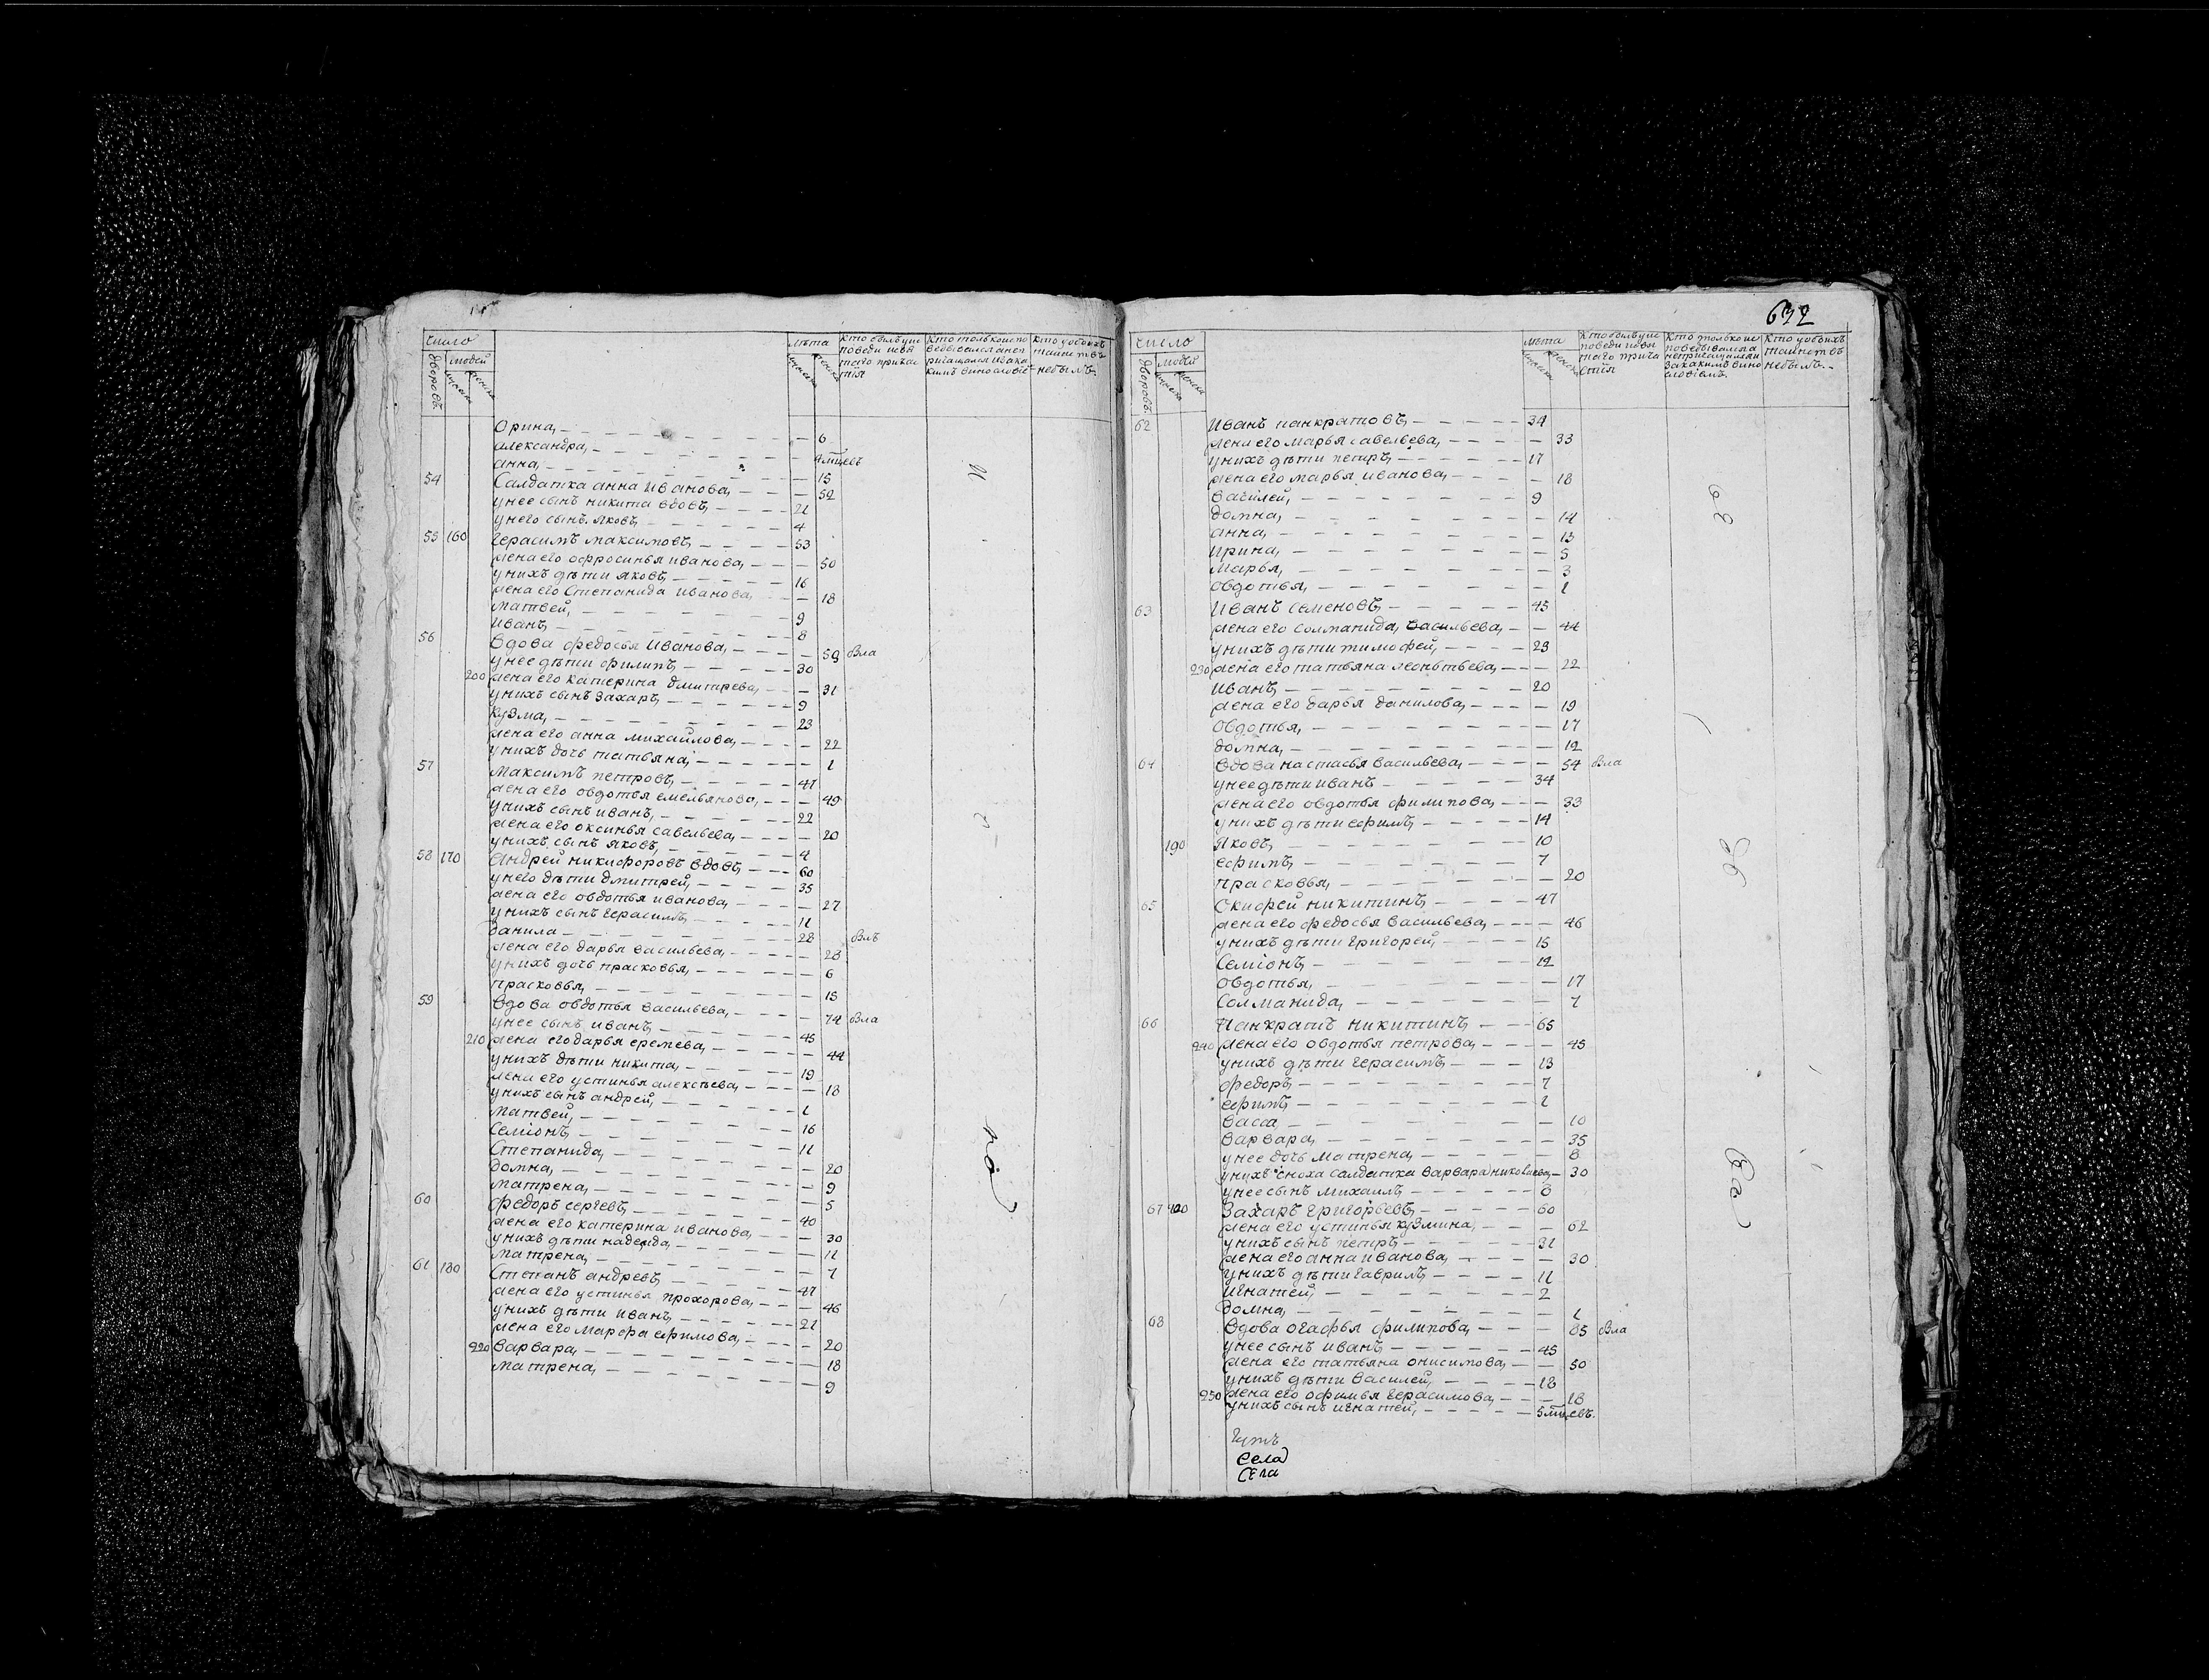 число
дворовъ
людей
мужеска
женска
лѣта
мужеска
женска
Кто былъ у ис
поведи и свя
таго прича
стія
Кто только испо
ведывался а не п
ричащался и за ка
кимъ винословіе
Кто у обоихъ
таинствъ
не былъ
Орина, 6
александра, мцсевъ
анна, 15
54 Салдатка анна Иванова, 52
у нее сынъ никита вдовъ, 21
у него сынъ яковъ, 4
55 160 герасимъ максимовъ, 53
жена его офросинья иванова, 50
у нихъ дѣти яковъ, 16
жена его Степанида иванова, 18
матвей, 9
иванъ, 8
56 Вдова федосья Иванова, 59 вла
у нее дѣти филипъ, 30
200 жена его катерина дмитрева, 31
у нихъ сынъ захаръ, 9
кузма, 23
жена его анна михайлова, 22
у нихъ дочь татьяна, 1
57 максимъ петровъ, 47
жена его овдотья емельянова, 49
у нихъ сынъ иванъ, 22
жена его оксинья савельева, 20
у нихъ сынъ яковъ, 4
58 170 андрей никифоровъ вдовъ, 60
у него дѣти дмитрей, 35
жена его овдотья иванова, 27
у нихъ сынъ герасимъ, 11
данила 28 влъ
жена его дарья васильева, 28
у нихъ дочь прасковья, 6
прасковья, 15
59 Вдова овдотья васильева, 74 вла
у нее сынъ иванъ, 45
210 жена его дарья еремева, 44
у нихъ дѣти никита, 19
жена его устинья алексѣева, 18
у нихъ сынъ андрей, 1
матвей, 16
Семіонъ, 11
Степанида, 20
домна, 9
матрена, 5
60 федоръ сергевъ, 40
жена его катерина иванова, 30
у нихъ дѣти надежда, 11
матрена, 7
61 180 Степанъ андревъ, 47
жена его устинья прохорова, 46
у нихъ дѣти иванъ, 21
жена его марфа ефимова, 20
220 варвара, 18
матрена, 9
632
число
дворовъ
людей
мужеска
женска
лѣта
мужеска
женска
Кто былъ у ис
поведи и свя
таго прича
стія
Кто только ис
поведывался а
не причащался и
за какимъ вино
словіемъ
Кто у обоихъ
таинствъ
не былъ
62 Иванъ панкратовъ, 34
жена его марья савельева, 33
у нихъ дѣти петръ, 17
жена его марья иванова, 18
василей, 9
домна, 14
анна, 13
ирина, 5
марья, 3
овдотья, 1
63 Иванъ семеновъ, 45
жена его солманида васильева, 44
у нихъ дѣти тимофей, 23
230 жена его татьяна леонтьева, 22
иванъ, 20
жена его дарья данилова, 19
овдотья, 17
домна, 12
64 вдова настасья васильева, 54 вла
у нее дѣти иванъ 34
жена его овдотья филипова, 33
у нихъ дѣти ефимъ, 14
190 яковъ, 10
ефимъ, 7
прасковья, 20
65 окифей никитинъ, 47
жена его федосья васильева, 46
у нихъ дѣти григорей, 15
Семіонъ 12
овдотья, 17
Солманида, 7
66 Панкратъ никитинъ, 65
240 жена его овдотья петрова, 45
у нихъ дѣти герасимъ, 13
федоръ 7
ефимъ, 1
васса, 10
варвара, 35
у нее дочь матрена, 8
у нихъ сноха салдатка варвара николаева, 30
у нее сынъ михаилъ 6
67 захаръ григорьевъ, 60
жена его устинья кузмина, 62
у нихъ сынъ петръ, 31
жена его анна иванова, 30
у нихъ дѣти гаврилъ, 11
игнатей, 2
домна, 1
68 Вдова огафья филипова, 85 вла
у нее сынъ иванъ 45
жена его татьяна онисимова, 50
у нихъ дѣти василей, 18
250 жена его офимья герасимова, 18
у нихъ сынъ игнатей, 5 мцсевъ
Села
Села